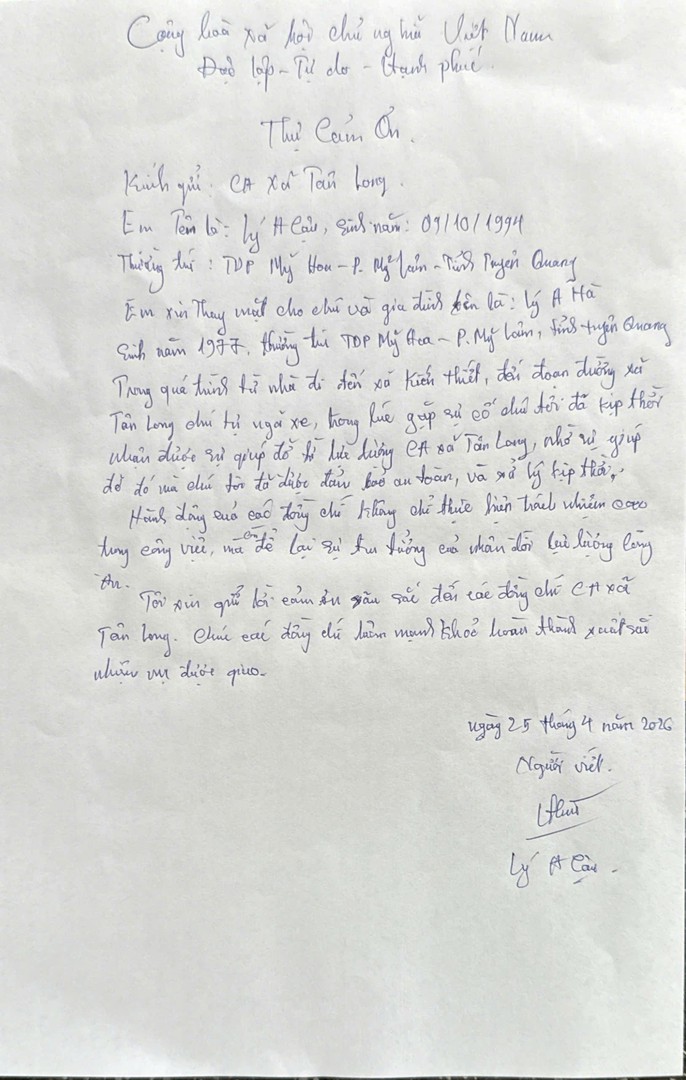 Cộng hoà xã hội chủ nghĩa Việt Nam
Độc lập - Tự do - Hạnh phúc.
Thư Cảm Ơn.
Kính gửi: CA xã Tân Long.
Em Tên là: Lý A Cầu, sinh năm: 09/10/1994
Thường trú: TDP Mỹ Hoa - P. Mỹ Lâm - Tỉnh Tuyên Quang
Em xin Thay mặt cho chú và gia đình tên là: Lý A Hà
Sinh năm 1977. thường trú TDP Mỹ Hoa - P. Mỹ Lâm, tỉnh tuyên Quang
Trong quá trình từ nhà đi đến xã Kiến thiết, đến đoạn đường xã
Tân Long chú tự ngã xe, trong lúc gặp sự cố chú tôi đã kịp thời
nhận được sự giúp đỡ từ lực lượng CA xã Tân Long, nhờ sự giúp
đỡ đó mà chú tôi đã được đảm bảo an toàn, và xử lý kịp thời.
Hành động của các đồng chí không chỉ thực hiện trách nhiệm cao
trong công việc, mà còn để lại sự tin tưởng của nhân dân lực lượng Công
An.
Tôi xin gửi lời cảm ơn sâu sắc đến các đồng chí CA xã
Tân Long. Chúc các đồng chí luôn mạnh khoẻ hoàn thành xuất sắc
nhiệm vụ được giao.
ngày 25 tháng 4 năm 2026
Người viết.
Lý A Cầu.